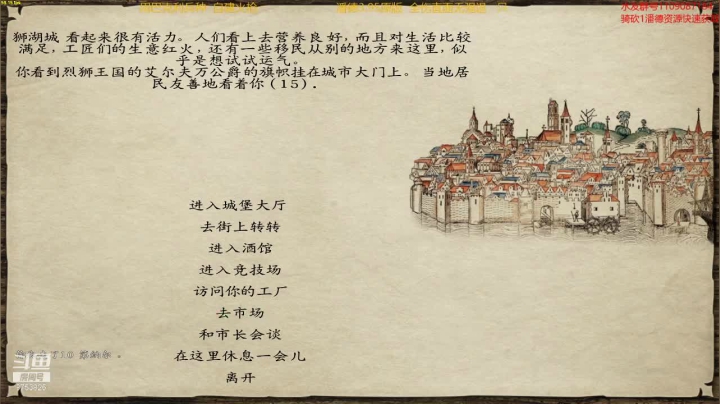 狮湖城 看起来很有活力。人们看上去营养良好,而且对生活比较
满足,工匠们的生意红火,还有一些移民从别的地方来这里,似
乎是想试试运气。
你看到烈狮王国的艾尔夫万公爵的旗帜挂在城市大门上。当地居
民友善地看着你(15).
进入城堡大厅
去街上转转
进入酒馆
进入竞技场
访问你的工厂
去市场
和市长会谈
在这里休息一会儿
离开
斗鱼
房间号